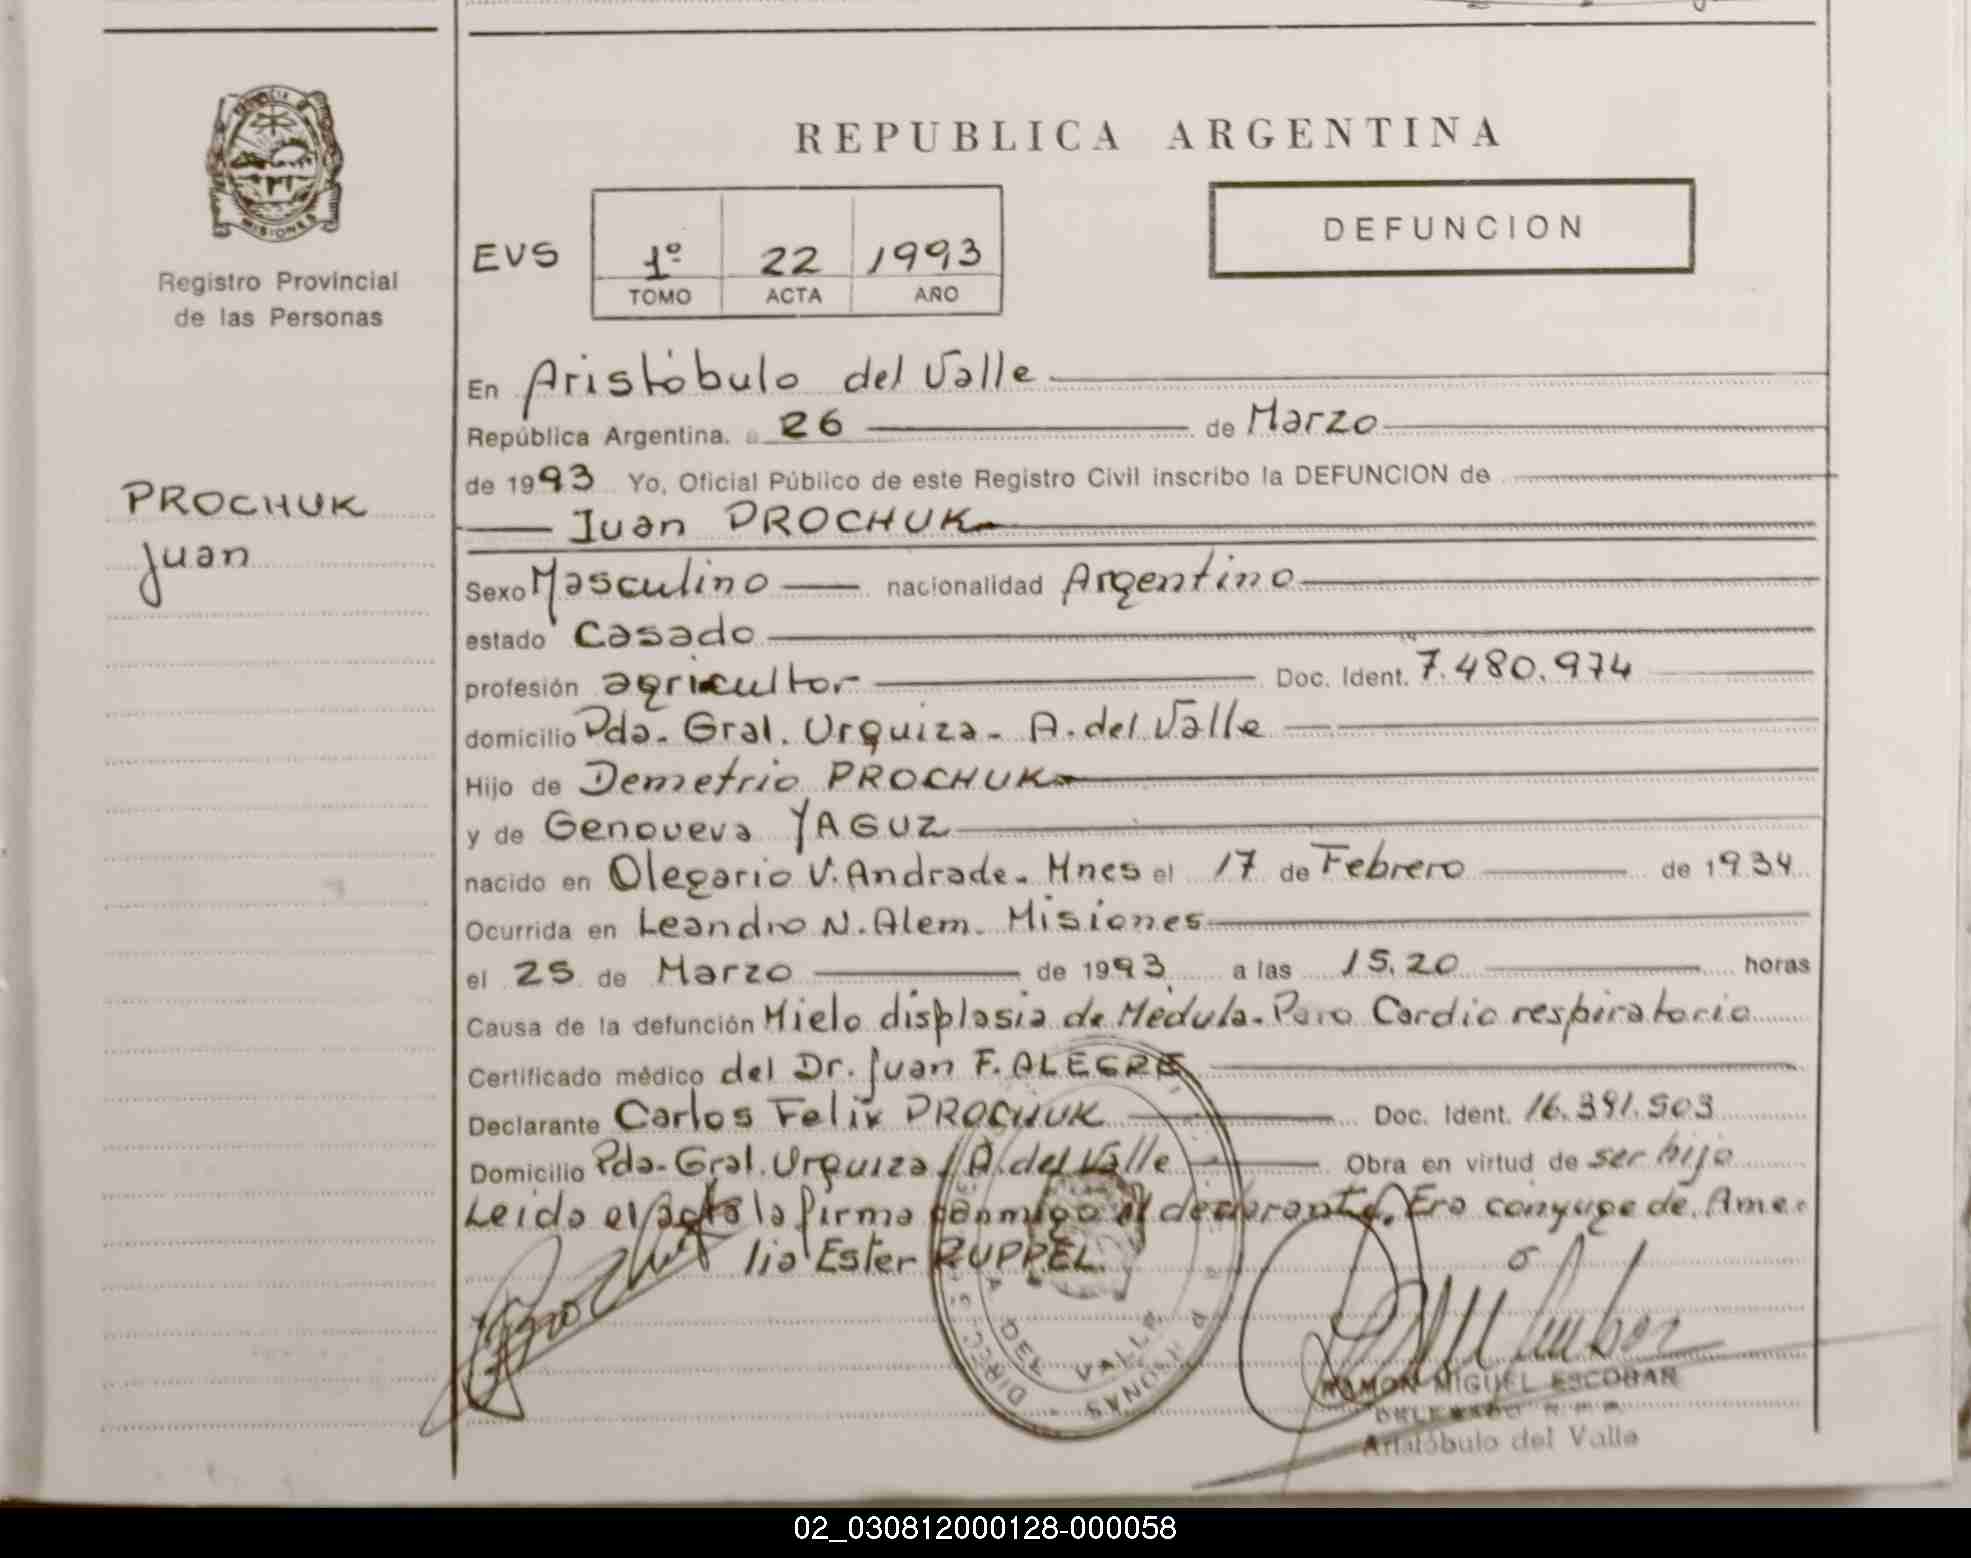 MISIONES
Registro Provincial
de las Personas
PROCHUK
Juan
REPUBLICA ARGENTINA
DEFUNCION
EVS
1º 22 1993
TOMO ACTA AÑO
En Aristóbulo del Valle
República Argentina, a 26 de Marzo
de 1993 Yo, Oficial Público de este Registro Civil inscribo la DEFUNCION de
Juan PROCHUK
Sexo Masculino nacionalidad Argentino
estado Casado
profesión agricultor Doc. Ident. 7.480.974
domicilio Pda. Gral. Urquiza - A. del Valle
Hijo de Demetrio PROCHUK
y de Genoveva YAGUZ
nacido en Olegario V. Andrade - Mnes el 17 de Febrero de 1934
Ocurrida en Leandro N. Alem - Misiones
el 25 de Marzo de 1993 a las 15,20 horas
Causa de la defunción Mielo displasia de Médula - Paro Cardio respiratorio
Certificado médico del Dr. Juan F. ALEGRE
Declarante Carlos Felix PROCHUK Doc. Ident. 16.391.503
Domicilio Pda. Gral. Urquiza / A. del Valle Obra en virtud de ser hijo
Leida el acta la firma conmigo el declarante. Era cónyuge de Ame-
lia Ester RUPPEL.
DEL VALLE
RAMON MIGUEL ESCOBAR
DELEGADO
Aristóbulo del Valle
02_030812000128-000058